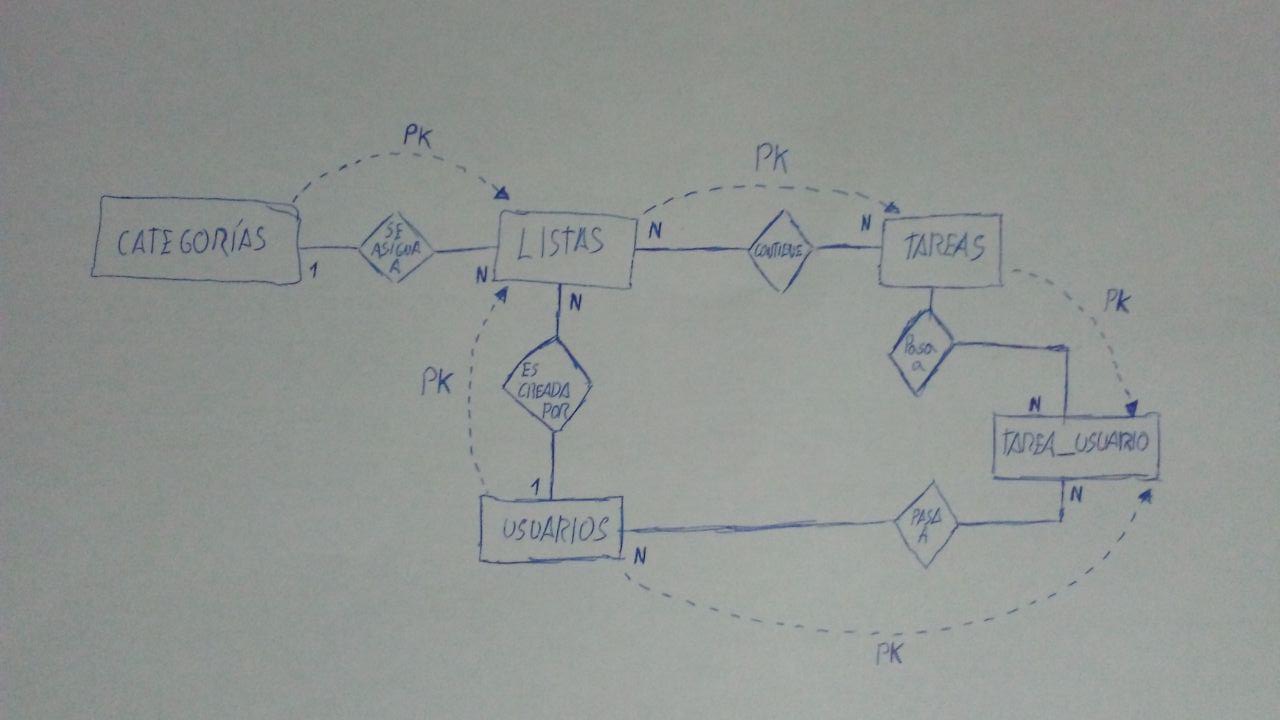 PK
PK
CATEGORÍAS
1
SE
ASIGNA
A
N
LISTAS
N
CONTIENE
N
TAREAS
PK
N
ES
CREADA
POR
1
PK
Pasa
a
N
TAREA_USUARIO
N
USUARIOS
N
PASA
A
PK